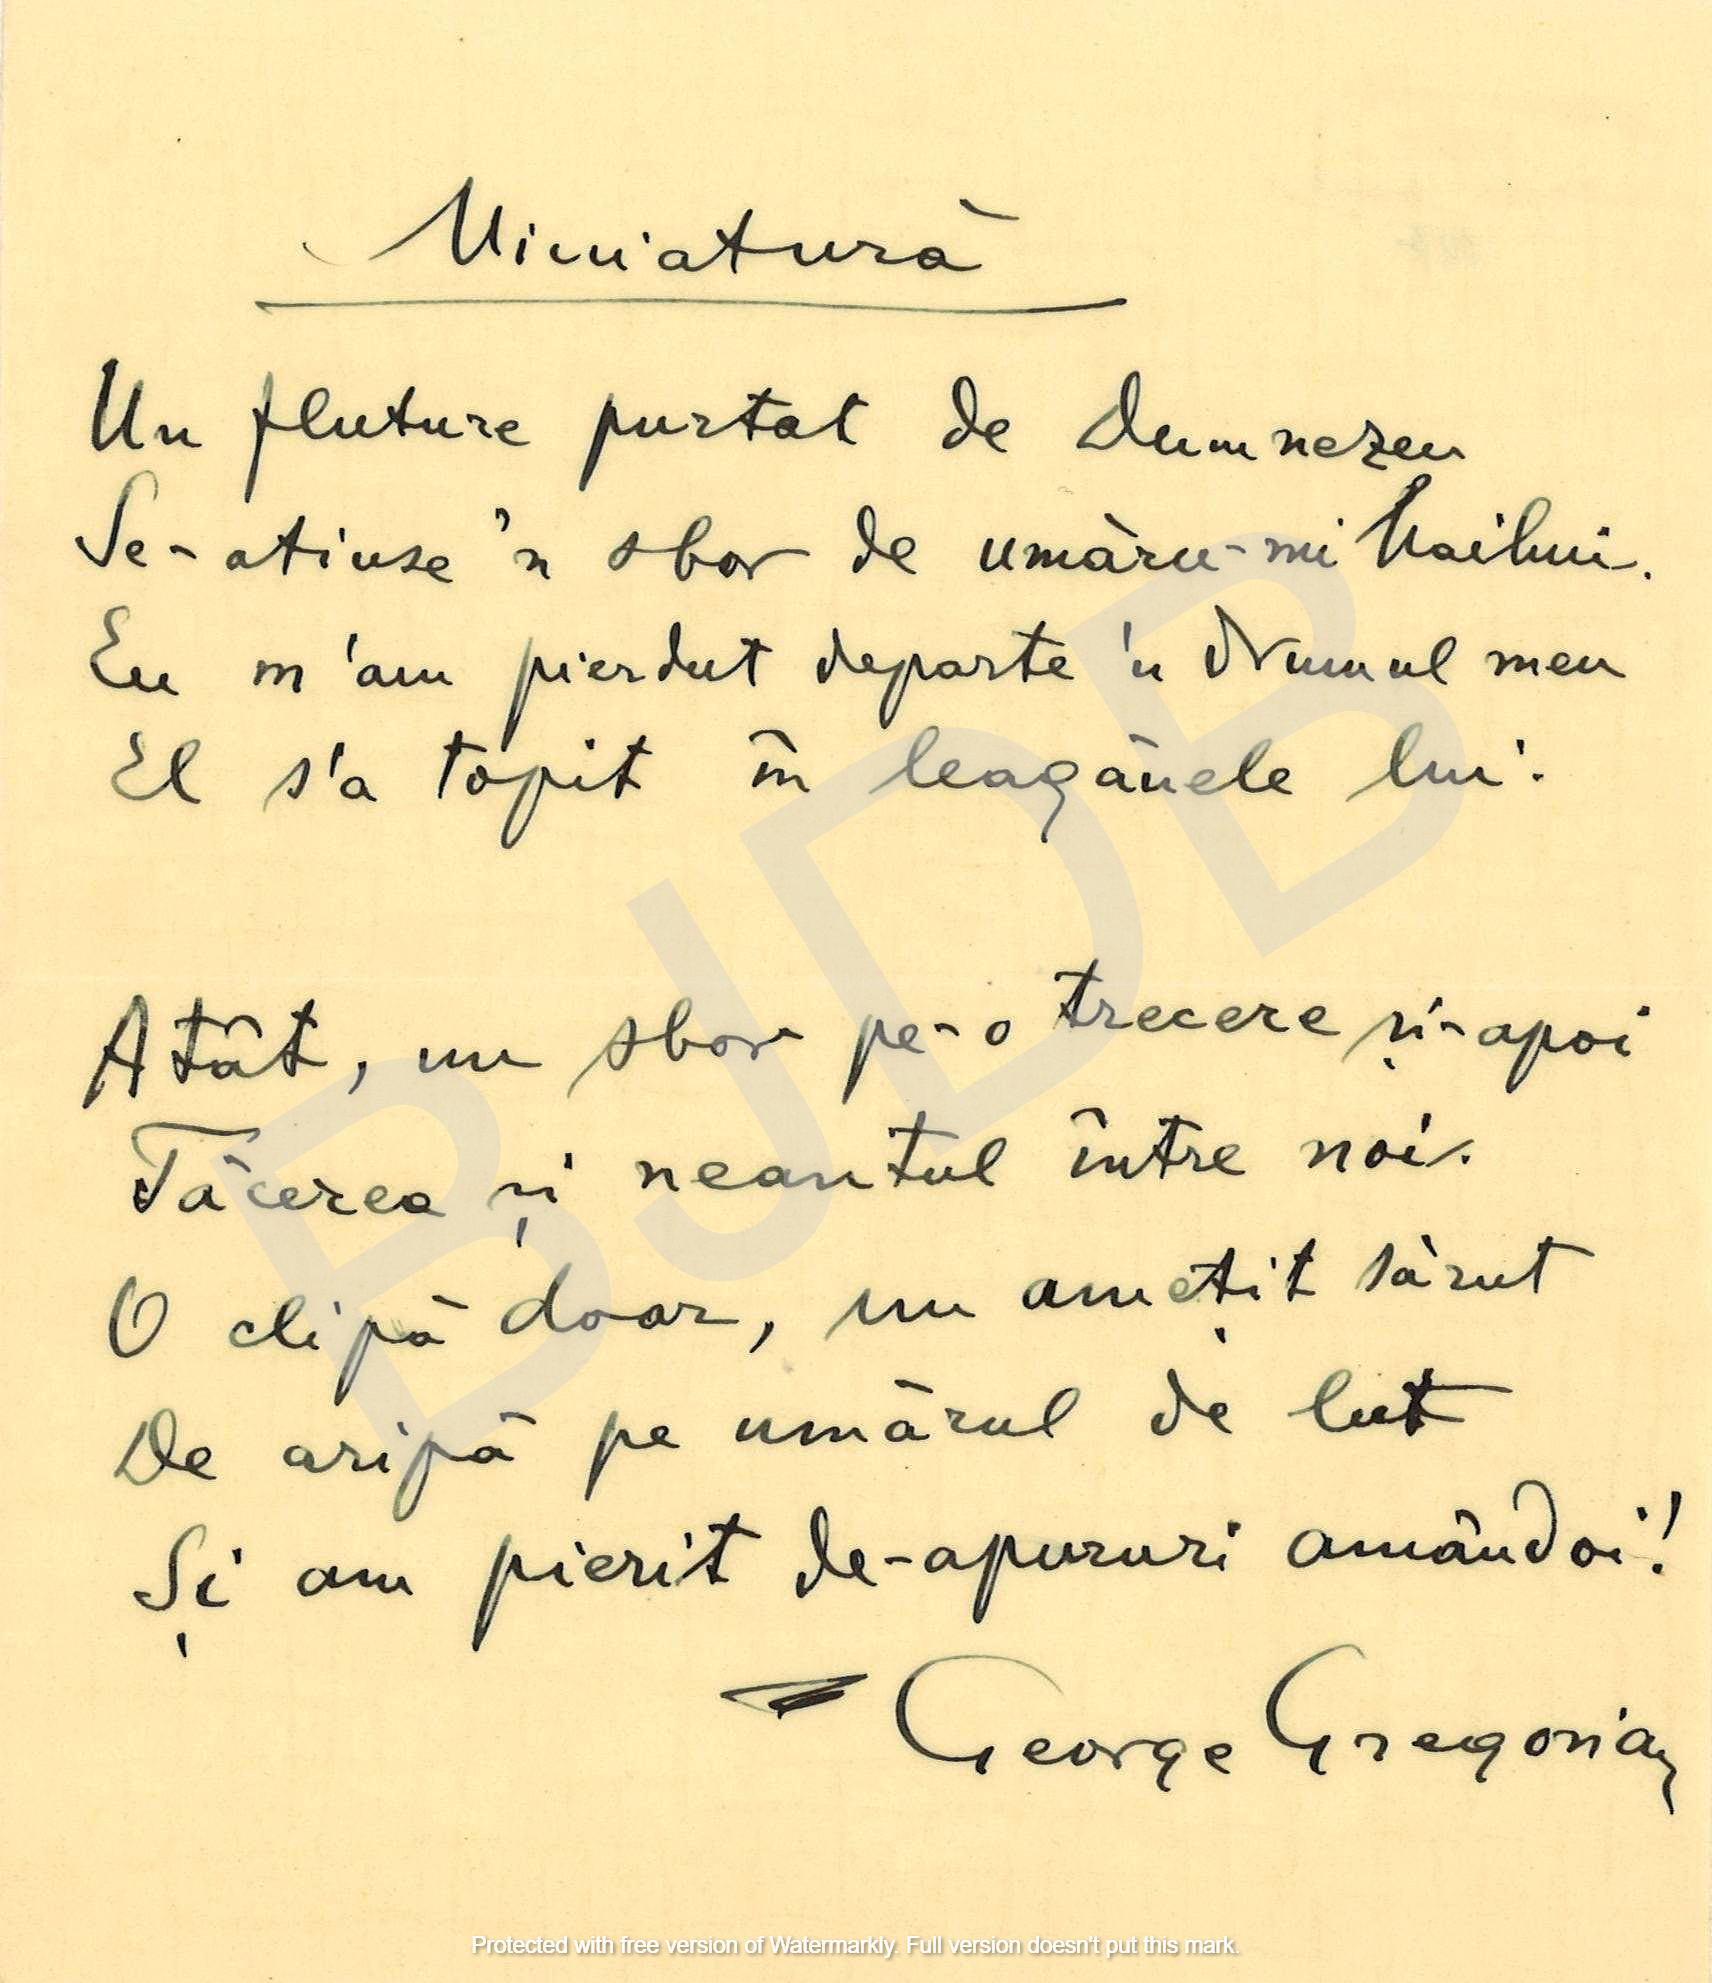 Miniatură
Un fluture purtat de Dumnezeu
Se-atinse 'n sbor de umăru-mi haihui.
Eu m'am pierdut departe 'n drumul meu
El s'a topit în leagănele lui.
Atât, un sbor pe-o trecere și-apoi
Tăcerea și neantul între noi.
O clipă doar, un amețit sărut
De aripă pe umărul de lut
Și am pierit de-apururi amândoi!
George Gregorian
BJDB
Protected with free version of Watermarkly. Full version doesn't put this mark.